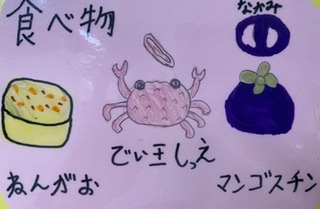 食べ物
なかみ
ねんがお
でい王しっえ
マンゴスチン